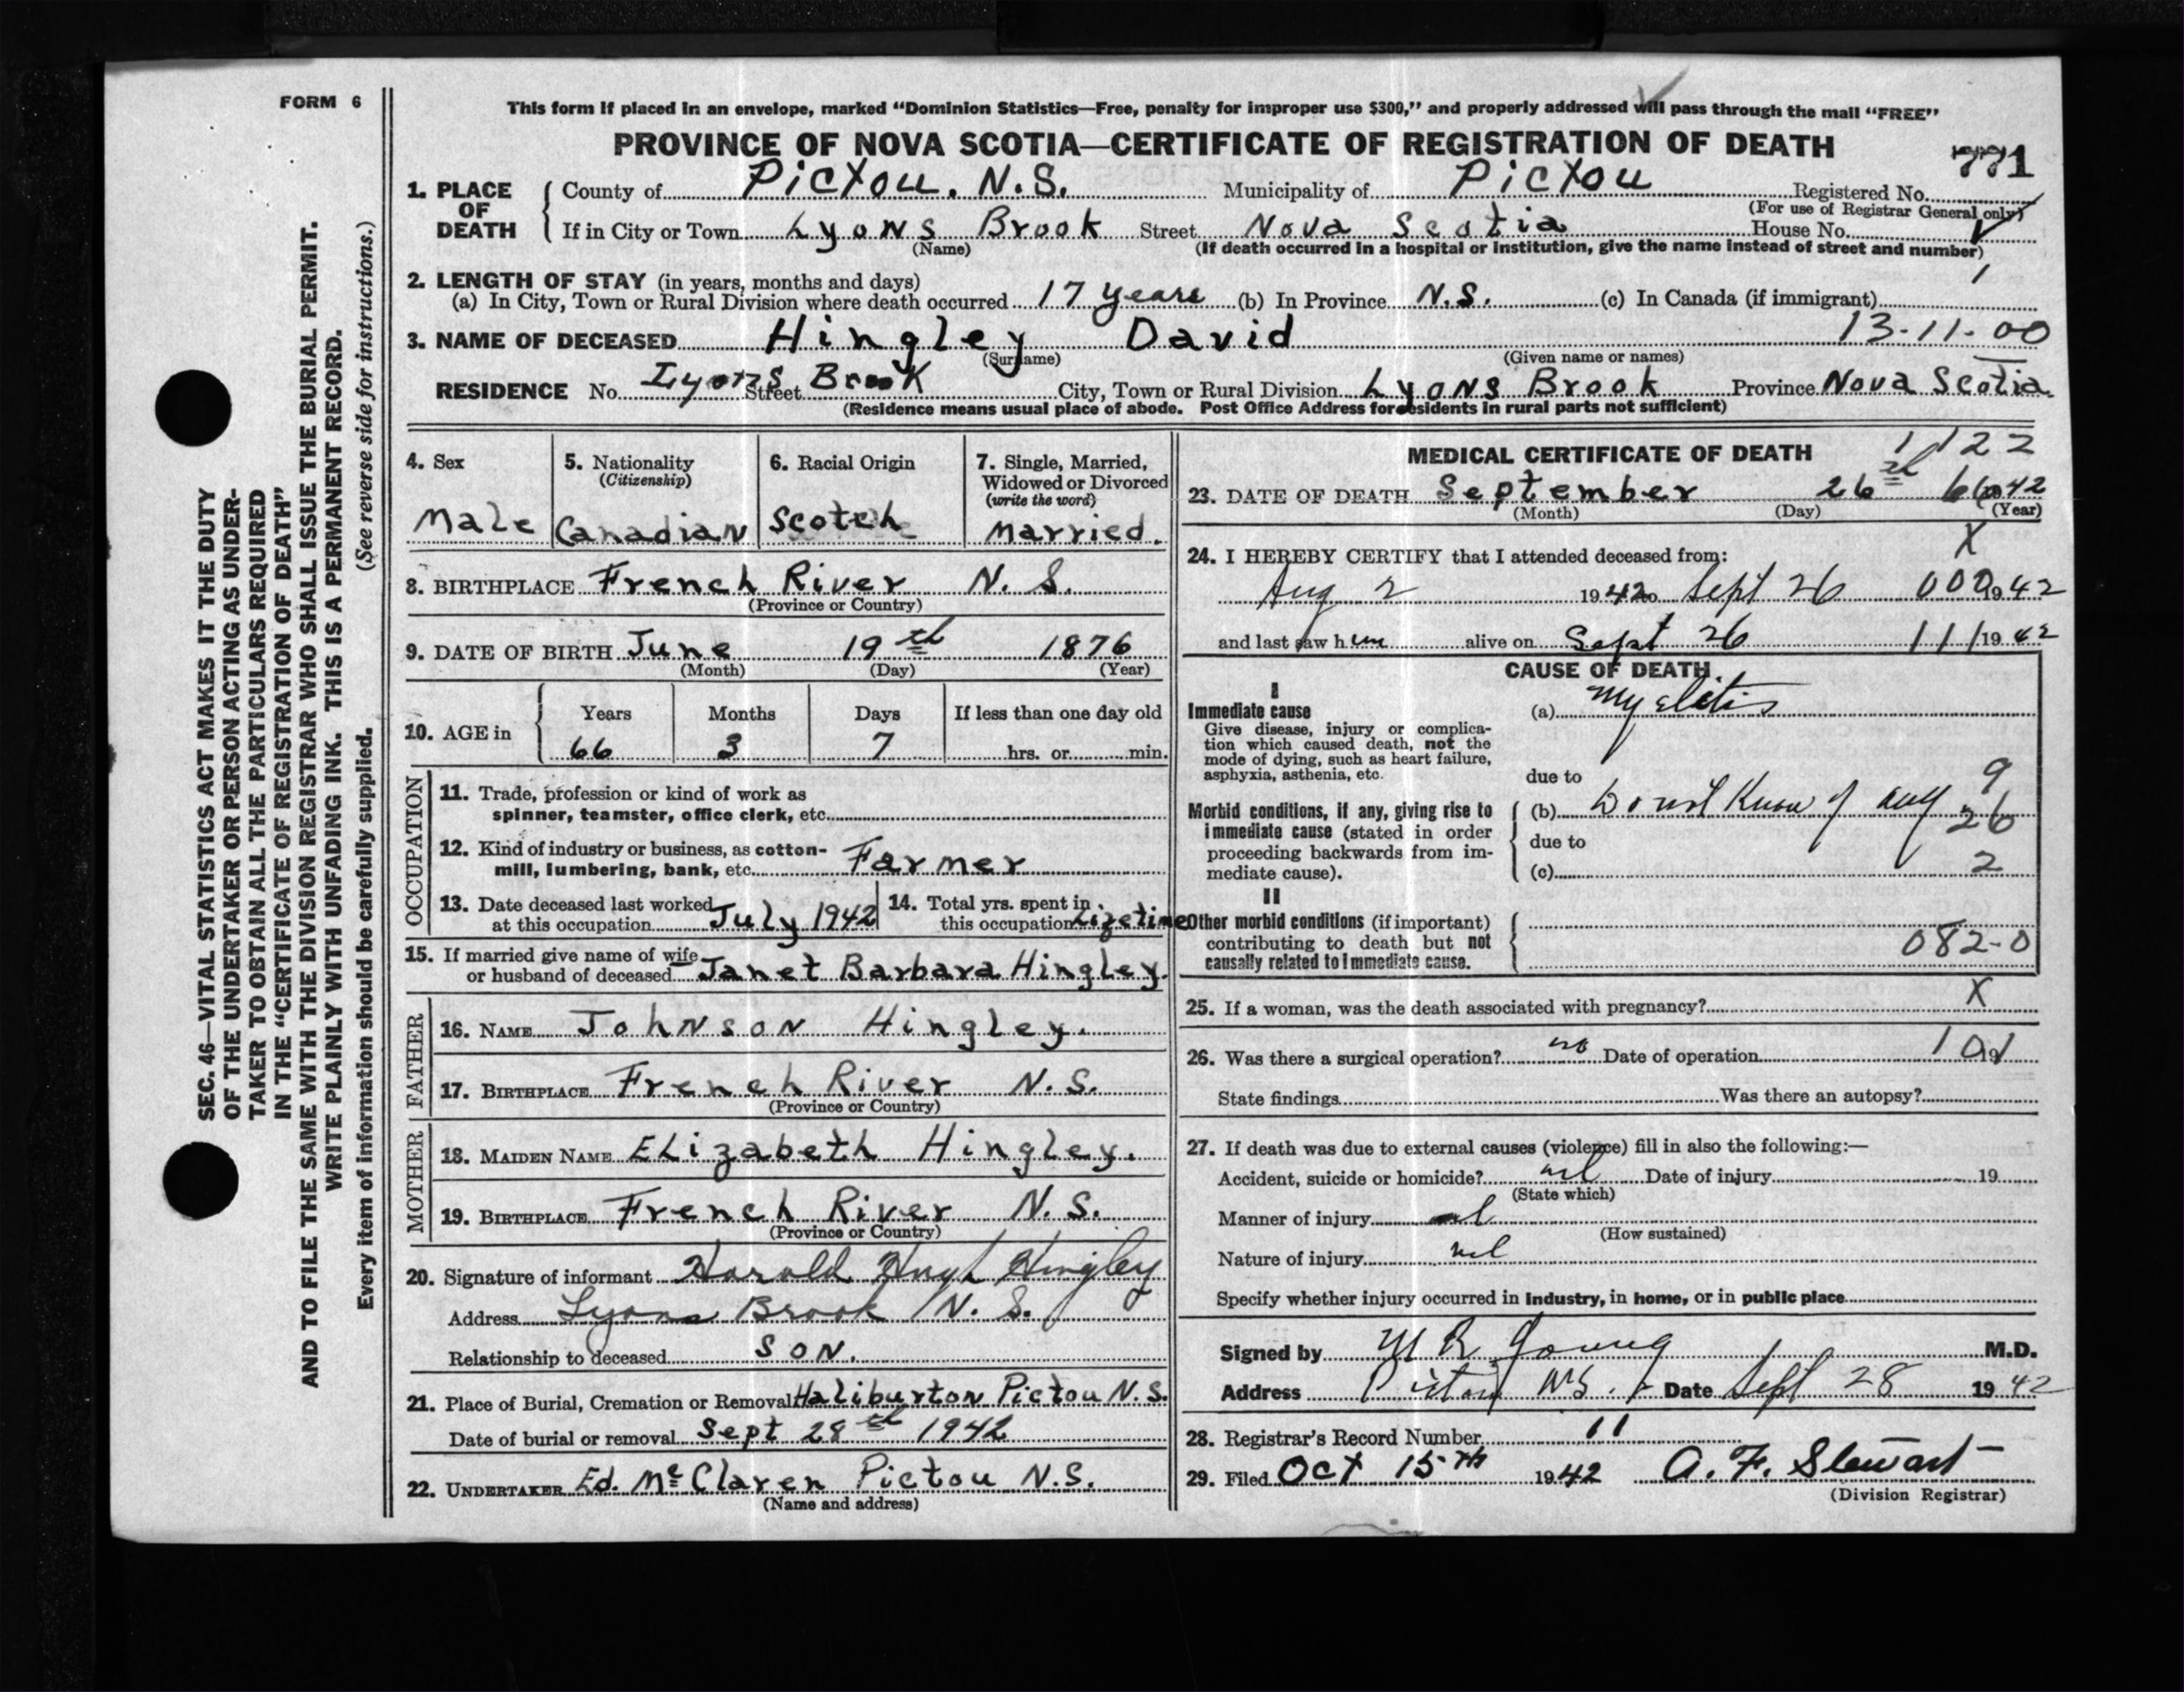 FORM 6
This form if placed in an envelope, marked “Dominion Statistics—Free, penalty for improper use $300,” and properly addressed will pass through the mail “FREE”
PROVINCE OF NOVA SCOTIA—CERTIFICATE OF REGISTRATION OF DEATH
771
1. PLACE OF DEATH County of Pictou. N.S. Municipality of Pictou Registered No.
(For use of Registrar General only)
If in City or Town Lyons Brook Street Nova Scotia House No.
(Name) (If death occurred in a hospital or institution, give the name instead of street and number)
2. LENGTH OF STAY (in years, months and days)
(a) In City, Town or Rural Division where death occurred 17 years (b) In Province N.S. (c) In Canada (if immigrant)
3. NAME OF DECEASED Hingley David 13-11-00
(Surname) (Given name or names)
RESIDENCE No. Lyons Brook Street City, Town or Rural Division Lyons Brook Province Nova Scotia
(Residence means usual place of abode. Post Office Address for residents in rural parts not sufficient)
4. Sex Male
5. Nationality (Citizenship) Canadian
6. Racial Origin Scotch
7. Single, Married, Widowed or Divorced (write the word) Married.
8. BIRTHPLACE French River N. S.
(Province or Country)
9. DATE OF BIRTH June 19th 1876
(Month) (Day) (Year)
10. AGE in Years 66 Months 3 Days 7 If less than one day old hrs. or min.
OCCUPATION
11. Trade, profession or kind of work as spinner, teamster, office clerk, etc.
12. Kind of industry or business, as cotton-mill, lumbering, bank, etc. Farmer
13. Date deceased last worked at this occupation July 1942
14. Total yrs. spent in this occupation Lifetime
15. If married give name of wife or husband of deceased Janet Barbara Hingley.
FATHER
16. NAME Johnson Hingley.
17. BIRTHPLACE French River N. S.
(Province or Country)
MOTHER
18. MAIDEN NAME Elizabeth Hingley.
19. BIRTHPLACE French River N. S.
(Province or Country)
20. Signature of informant Harold Hugh Hingley
Address Lyons Brook N. S.
Relationship to deceased SON.
21. Place of Burial, Cremation or Removal Haliburton Pictou N.S.
Date of burial or removal Sept 28th 1942
22. UNDERTAKER Ed. McClaren Pictou N.S.
(Name and address)
MEDICAL CERTIFICATE OF DEATH 1122
23. DATE OF DEATH September 26 66 42
(Month) (Day) (Year)
X
24. I HEREBY CERTIFY that I attended deceased from:
Aug 2 1942 to Sept 26 000 1942
and last saw him alive on Sept 26 111 1942
CAUSE OF DEATH
I
Immediate cause (a) Myelitis
Give disease, injury or complication which caused death, not the mode of dying, such as heart failure, asphyxia, asthenia, etc.
due to 9
Morbid conditions, if any, giving rise to immediate cause (stated in order proceeding backwards from immediate cause).
(b) Do not know of any 26
due to
(c) 2
II
Other morbid conditions (if important) contributing to death but not causally related to immediate cause.
082-0
25. If a woman, was the death associated with pregnancy? X
26. Was there a surgical operation? no Date of operation
State findings Was there an autopsy?
27. If death was due to external causes (violence) fill in also the following:—
Accident, suicide or homicide? nil Date of injury 19
(State which)
Manner of injury nil
(How sustained)
Nature of injury nil
Specify whether injury occurred in industry, in home, or in public place
Signed by M R Young M.D.
Address Pictou N.S. Date Sept 28 1942
28. Registrar's Record Number 11
29. Filed Oct 15th 1942 A. F. Stewart
(Division Registrar)
SEC. 46—VITAL STATISTICS ACT MAKES IT THE DUTY
OF THE UNDERTAKER OR PERSON ACTING AS UNDER-
TAKER TO OBTAIN ALL THE PARTICULARS REQUIRED
IN THE “CERTIFICATE OF REGISTRATION OF DEATH”
AND TO FILE THE SAME WITH THE DIVISION REGISTRAR WHO SHALL ISSUE THE BURIAL PERMIT.
WRITE PLAINLY WITH UNFADING INK. THIS IS A PERMANENT RECORD.
Every item of information should be carefully supplied. (See reverse side for instructions.)